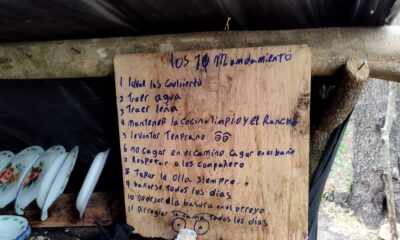 los 10 Mamdamiento
1 lavar los Cuvierto
2 Traer agua
3 Traer leña
4 mantener la Cocina limpio y el Rancho
5 levantar Temprano
6 no cagar en el camino Cagar en el baño
7 Respetar a los compañero
8 Tapar la olla siempre
9 bañarse todos los dias
10 no dejar la basura en el arroyo
11 Arreglar la cama todos los dias